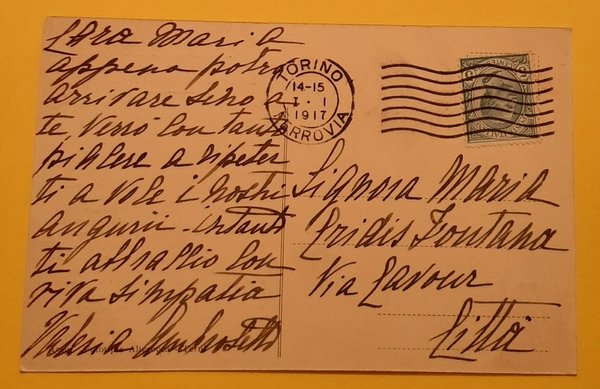 Cara Maria
appena potrò
arrivare sino a
te, verrò con tanto
piacere a ripeter
ti a voce i nostri
auguri - intanto
ti abbraccio con
viva simpatia
Valeria
TORINO
14-15
1·1
1917
FERROVIA
Signora Maria
Fontana
Via Cavour
Città